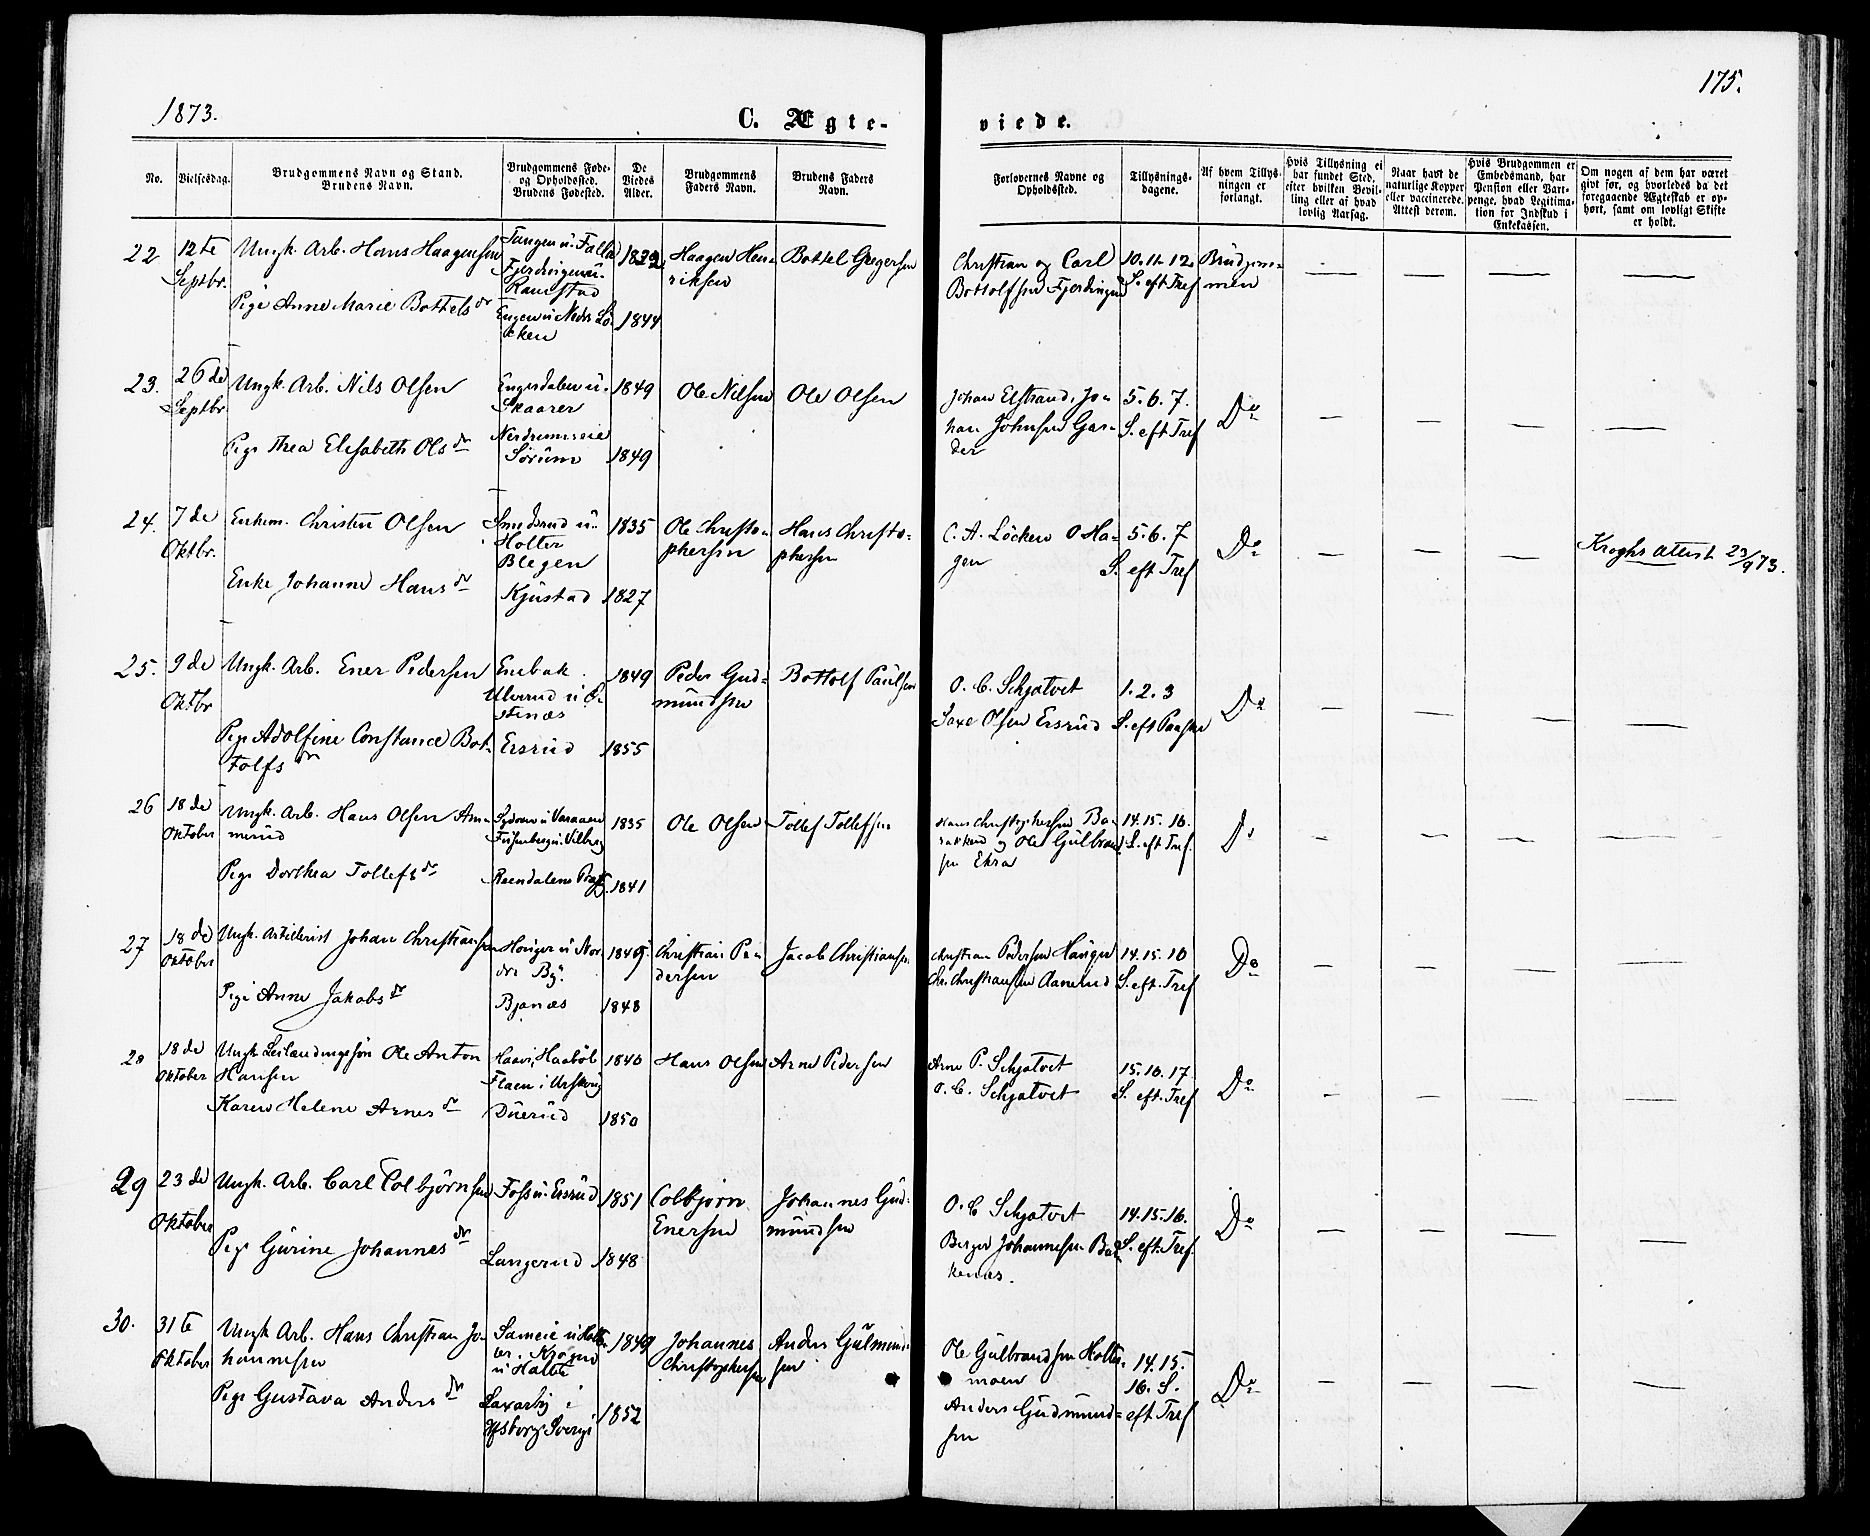 1873.
175.
C. Ægte-
viede.
No.
Vielsesdag.
Brudgommens Navn og Stand.
Brudens Navn.
Brudgommens Føde-
og Opholdssted.
Brudens Fødested.
De
Viedes
Alder.
Brudgommens
Faders Navn.
Brudens Faders
Navn.
Forlovernes Navne og
Opholdssted.
Tillysnings-
dagene.
Af hvem Tillys-
ningen er
forlangt.
Hvis Tillysning ei
har fundet Sted,
efter hvilken Bevil-
ling eller af hvad
lovlig Aarsag.
Naar havt de
naturlige Kopper
eller vaccinerede.
Attest derom.
Hvis Brudgommen er
Embedsmand, har
Pension eller Vart-
penge, hvad Legitima-
tion for Indskud i
Enkekassen.
Om nogen af dem har været
givt før, og hvorledes da det
foregaaende Ægteskab er op-
hørt, samt om lovligt Skifte
er holdt.
22
12te
Septbr.
Ungk. Arb. Hans Haagensen
Pige Anne Marie Bottels dr
Tangen u. Falla
Fjerdingen u.
Ramstad
Engen u Nedre Lö-
cken
1844
Haagen Hen-
riksen
Bottel Gregersen
Christian og Carl
Bottolfsen Fjerdingen
10. 11. 12.
S. eft Tref
Brudgom-
men
23.
26de
Septbr
Ungk. Arb. Nils Olsen
Pige Thea Elisabeth Ols dr
Engerdalen u.
Skaarer
Nerdrumseie
Sörum
1849
1849
Ole Nilsen
Ole Olsen
Johan Elstrand, Jo-
han Johnsen Gar-
der
5. 6. 7.
S. eft Tref
Do
24.
7de
Oktbr.
Enkem. Christen Olsen
Enke Johanne Hans dr
Smedsrud u.
Holter
Blegen
Kjustad
1835
1827
Ole Christo-
phersen
Hans Christo-
phersen
C. A. Löcken O Ha-
gen
5. 6. 7
S. eft Tref
Do
Kroghs attest 23/9 73.
25.
9de
Oktbr
Ungk. Arb. Ener Pedersen
Pige Adolfine Constance Bot-
tolfs dr
Enebak
Ulverud u Ö-
stenæs
Ersrud
1849
1855
Peder Gud-
mundsen
Bottolf Paulsen
O. C. Schjatvet
Saxe Olsen Ersrud
1. 2. 3
S. eft Paaske
Do
26
18de
Oktober
Ungk. Arb. Hans Olsen Am-
merud
Pige Dorthea Tollefs dr
1835
1841
Ole Olsen
Tollef Tollefsen
Hans Christophersen Ba-
rakken og Ole Gulbrand-
sen Ekra
14. 15. 16.
S. eft Tref.
Do
27
18de
Oktober
Ungk. Artillerist Johan Christiansen
Pige Anne Jakobs dr
Hauger u Nor-
dre By.
Bjanæs
1849
1848
Christian Pe-
dersen
Jacob Christiansen
Christian Pedersen Hauger
Chr. Christiansen Aamerud
14. 15. 16
S. eft. Tref
Do
28
18de
Oktober
Ungk. Leilændingssön Ole Anton
Hansen
Karen Helene Arnes dr
Haavi, Haaböl
Flaen i Urskoug
Duerud
1840
1850
Hans Olsen
Arne Pedersen
Arne P. Schjatvet
O. C. Schjatvet
15. 16. 17.
S. eft. Tref
Do
29
23de
Oktober
Ungk. Arb. Carl Colbjörnsen
Pige Gurine Johannes dr
Foss u. Ersrud
Langerud
1851
1848
Colbjörn
Enersen
Johannes Gud-
mundsen
O. C Schjatvet
Berger Johannesen Bak-
kenæs.
14. 15. 16.
S. eft. Tref.
Do
30.
31te
Oktober
Ungk Arb. Hans Christian Jo-
hannesen
Pige Gustava Anders dr
Sameie u Holt-
er. Krogen
u Halter
Laxarby i
Elfsborg Sverige
1849
1852
Johannes
Christophersen
Anders Gulmund-
sen
Ole Gulbrandsen Holter-
moen
Anders Gudmund-
sen
14. 15.
16. S.
eft Tref
Do